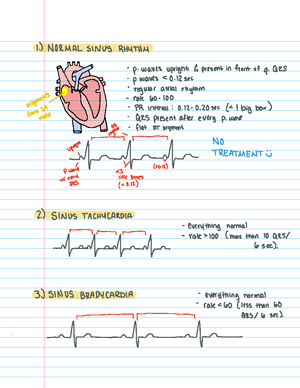 1.) NORMAL SINUS RHYTHM
- p-waves upright & present in front of q QRS
- p waves < 0.12 sec
- regular atrial rhythm
- rate 60-100
- PR interval : 0.12-0.20 sec (< 1 big box)
- QRS present after every p wave
- flat ST segment
originates from SA node
NO
TREATMENT
upright
p wave
w/ every
QRS
<3
(< 0.12)
(<0.12)
2) SINUS TACHYCARDIA
- everything normal
- rate >100 (more than 10 QRS/
6 sec).
3.) SINUS BRADYCARDIA
- everything normal
- rate < 60 (less than 60
QRS/ 6 sec).